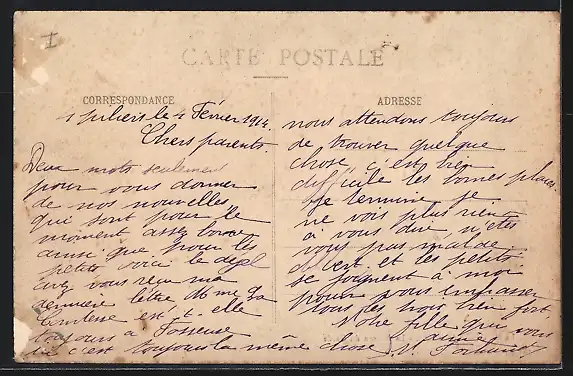 I
CARTE POSTALE
CORRESPONDANCE
ADRESSE
le 4 Février 1914
Chers parents
Deux mots seulement
pour vous donner
de nos nouvelles
qui sont pour le
moment assez bonne
ainsi que pour les
petits voici le
avez vous reçu ma
dernière lètre
est-t-elle
toujours a Fosseuse
ici c'est toujours la même chose
nous attendons toujours
de trouver quelque
chose c'est bien
difficile les bonnes places
Je termine je
ne vois plus rien
à vous dire
vous pas malade
et les petits
se joignent à moi
pour vous embrasser
tous les trois bien fort
Votre fille qui vous
aime